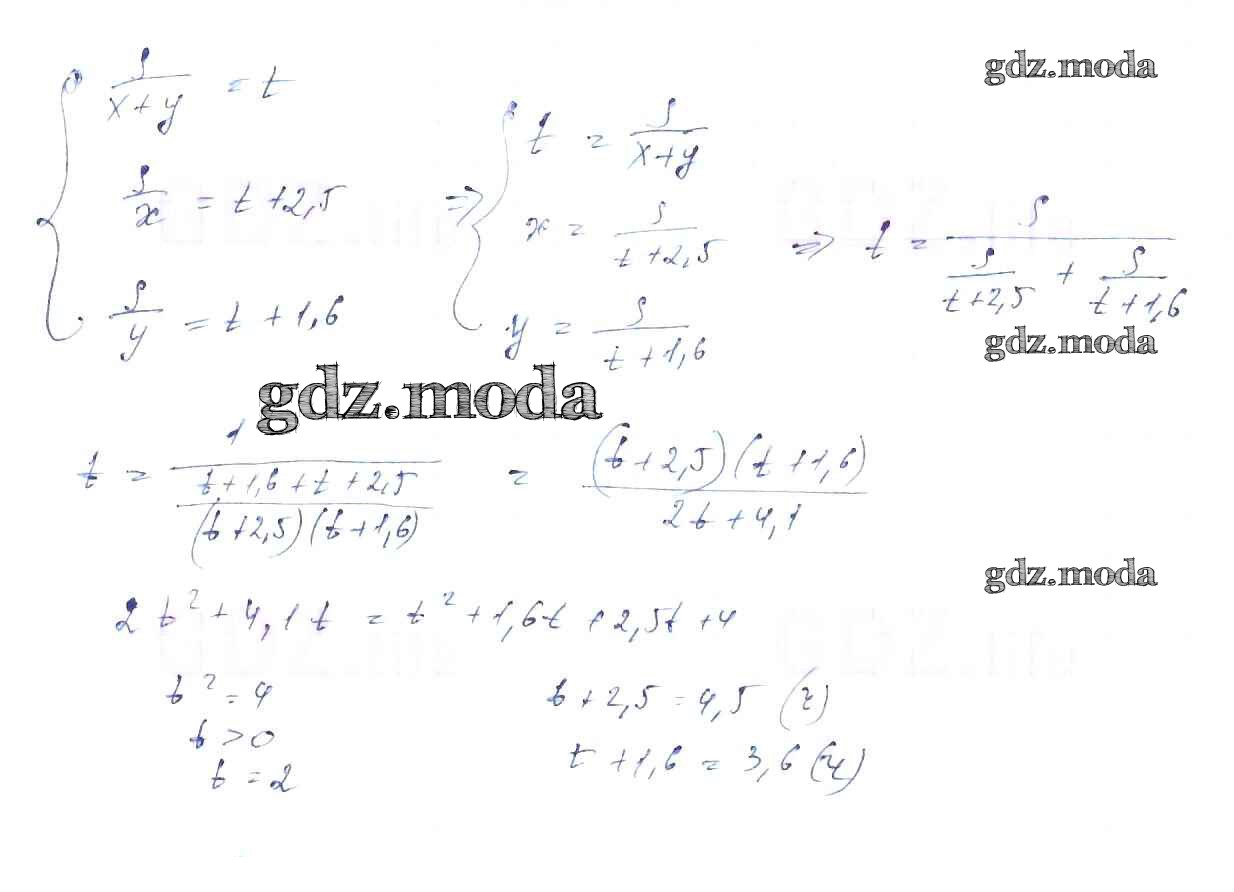 gdz.moda
S/(x+y) = t
S/x = t+2,5
S/y = t+1,6
⇒ t = S/(x+y)
x = S/(t+2,5)
y = S/(t+1,6)
⇒ t = S/(S/(t+2,5) + S/(t+1,6))
gdz.moda
gdz.moda
t = 1/((t+1,6+t+2,5)/((t+2,5)(t+1,6))) = (t+2,5)(t+1,6)/(2t+4,1)
gdz.moda
2t²+4,1t = t²+1,6t+2,5t+4
t²=4
t>0
t=2
t+2,5=4,5 (ч)
t+1,6=3,6(ч)
GDZ.life
GDZ.life
GDZ.life
GDZ.life